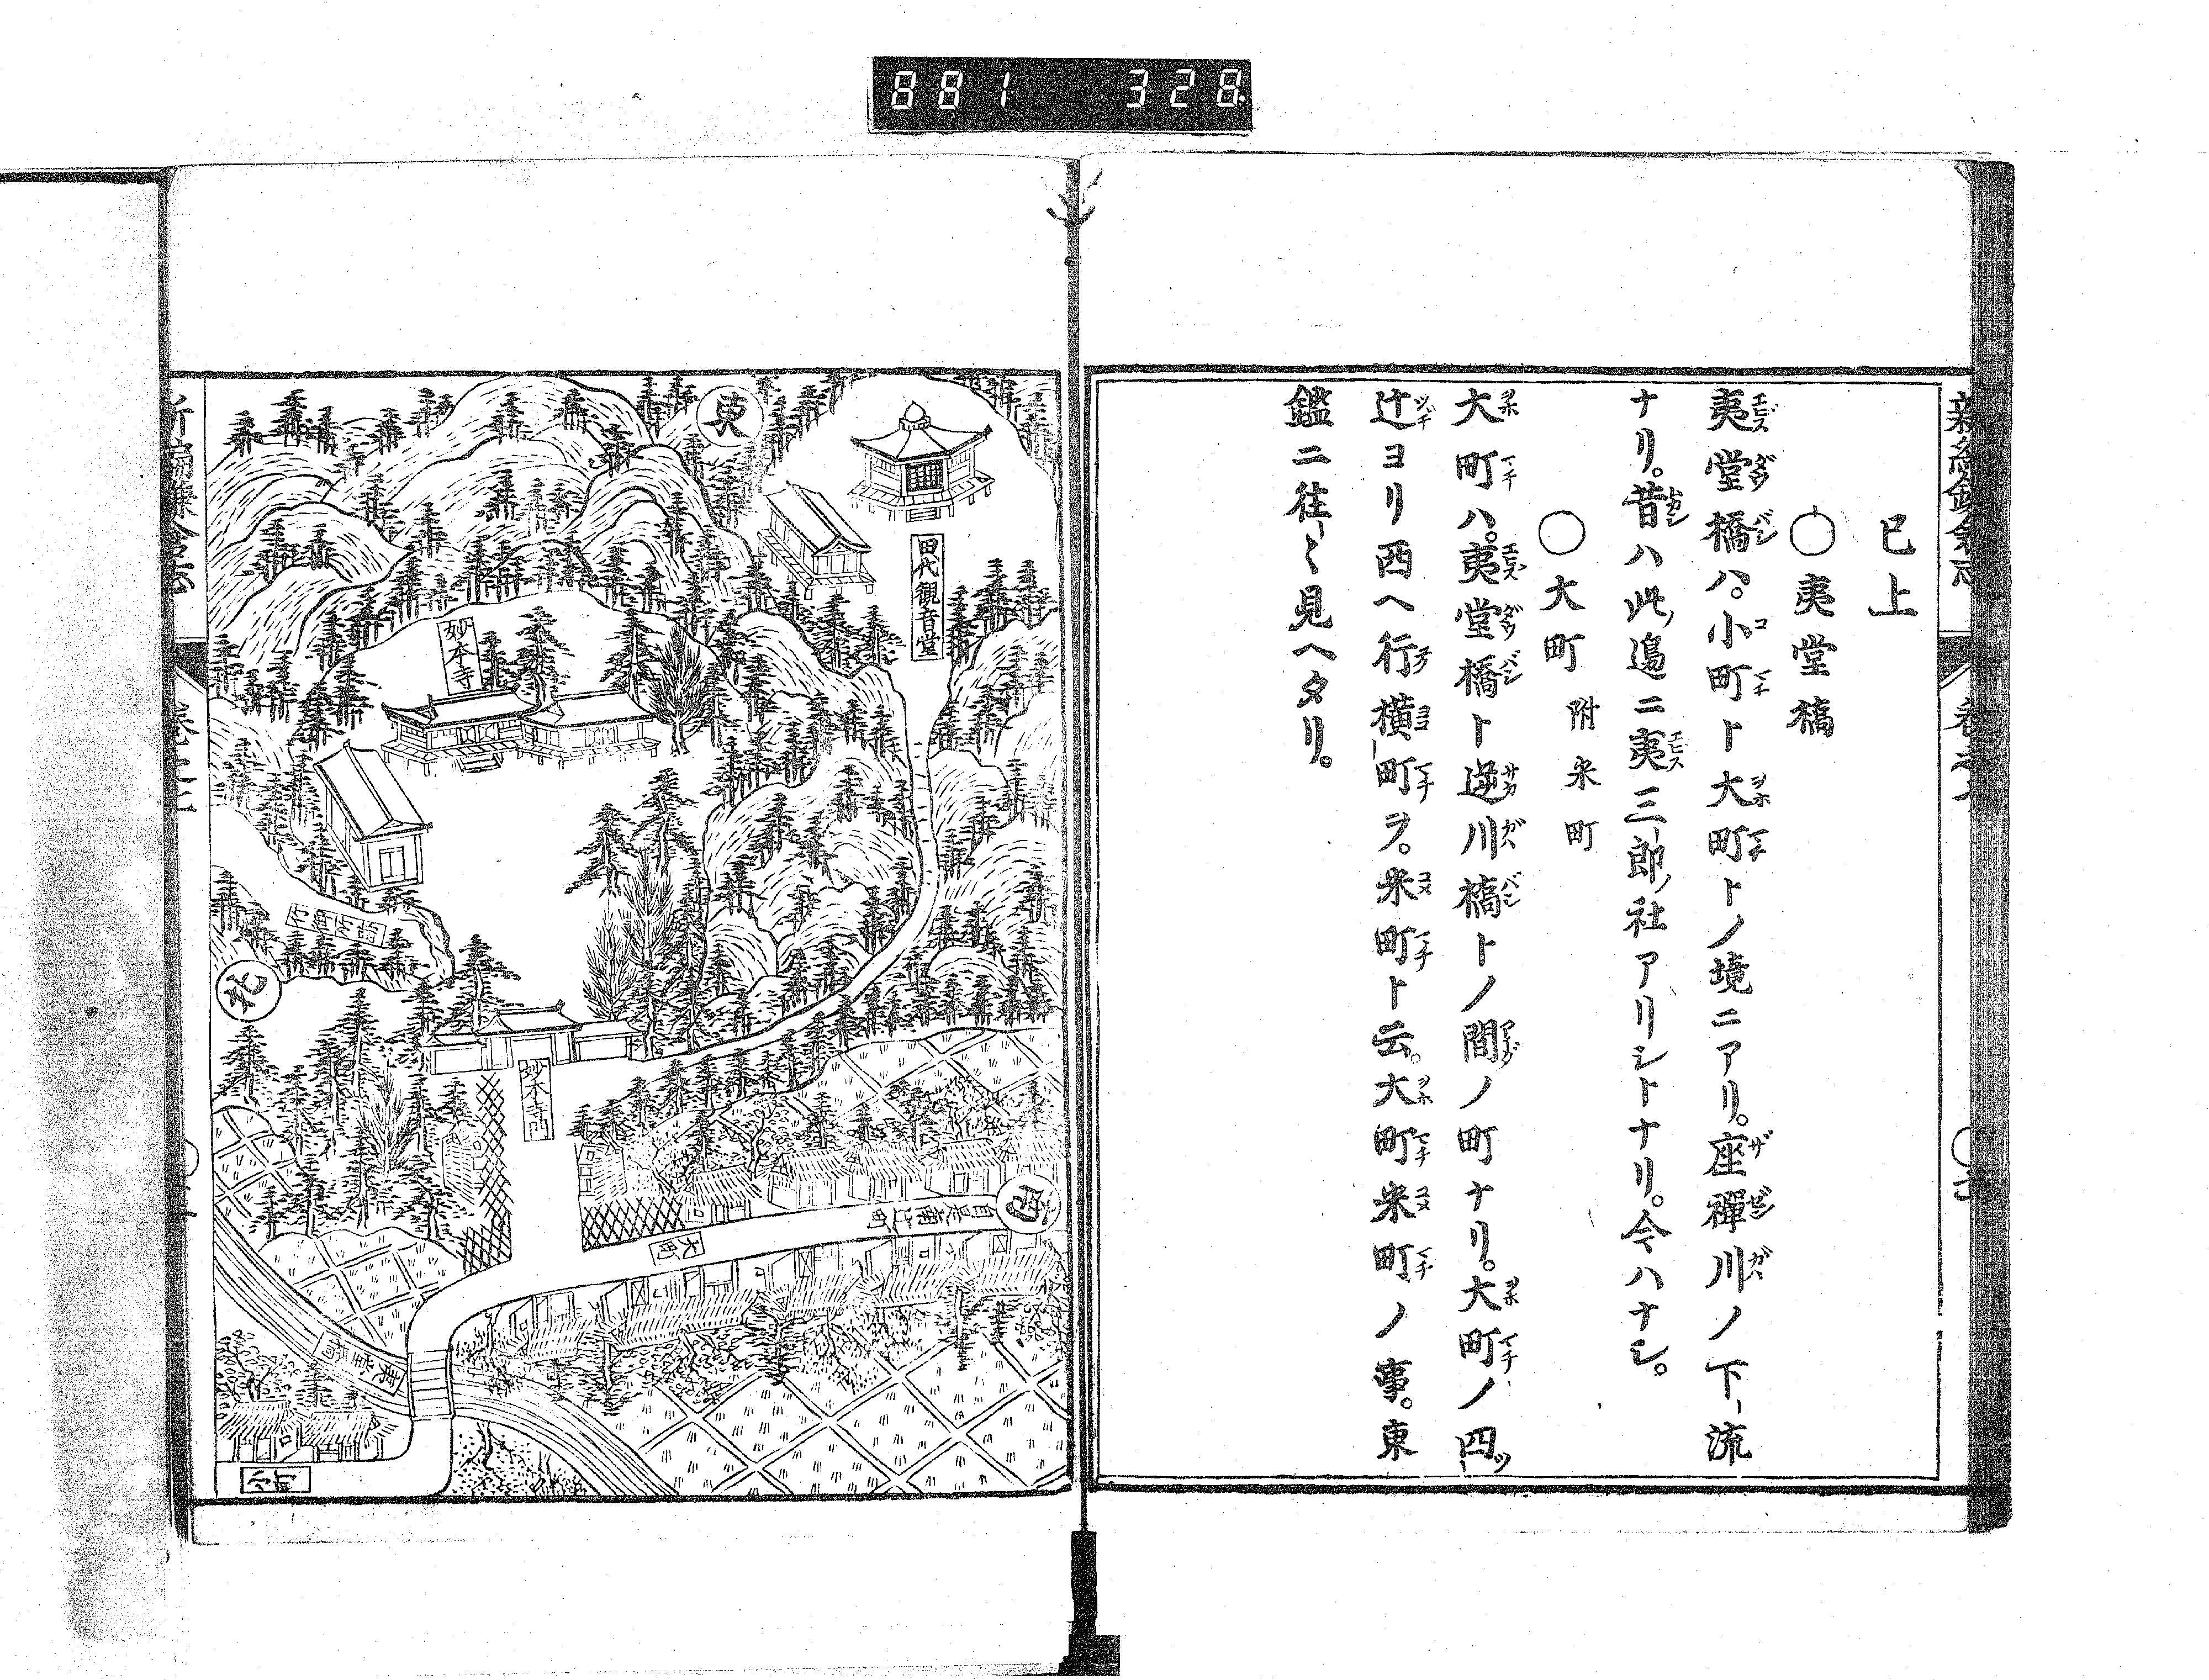 881 328
已上
○夷堂橋
夷堂橋ハ。小町ト大町トノ境ニアリ。座禪川ノ下流
ナリ。昔ハ此邉ニ夷三郎ノ社アリシトナリ。今ハナシ。
○大町 附米町
大町ハ。夷堂橋ト逆川橋トノ間ノ町ナリ。大町ノ四ツ
辻ヨリ西ヘ行横町ヲ。米町ト云。大町米町ノ事。東
鑑ニ往々見ヘタリ。
東
田代觀音堂
妙本寺
北
妙本寺門
大町
夷堂橋